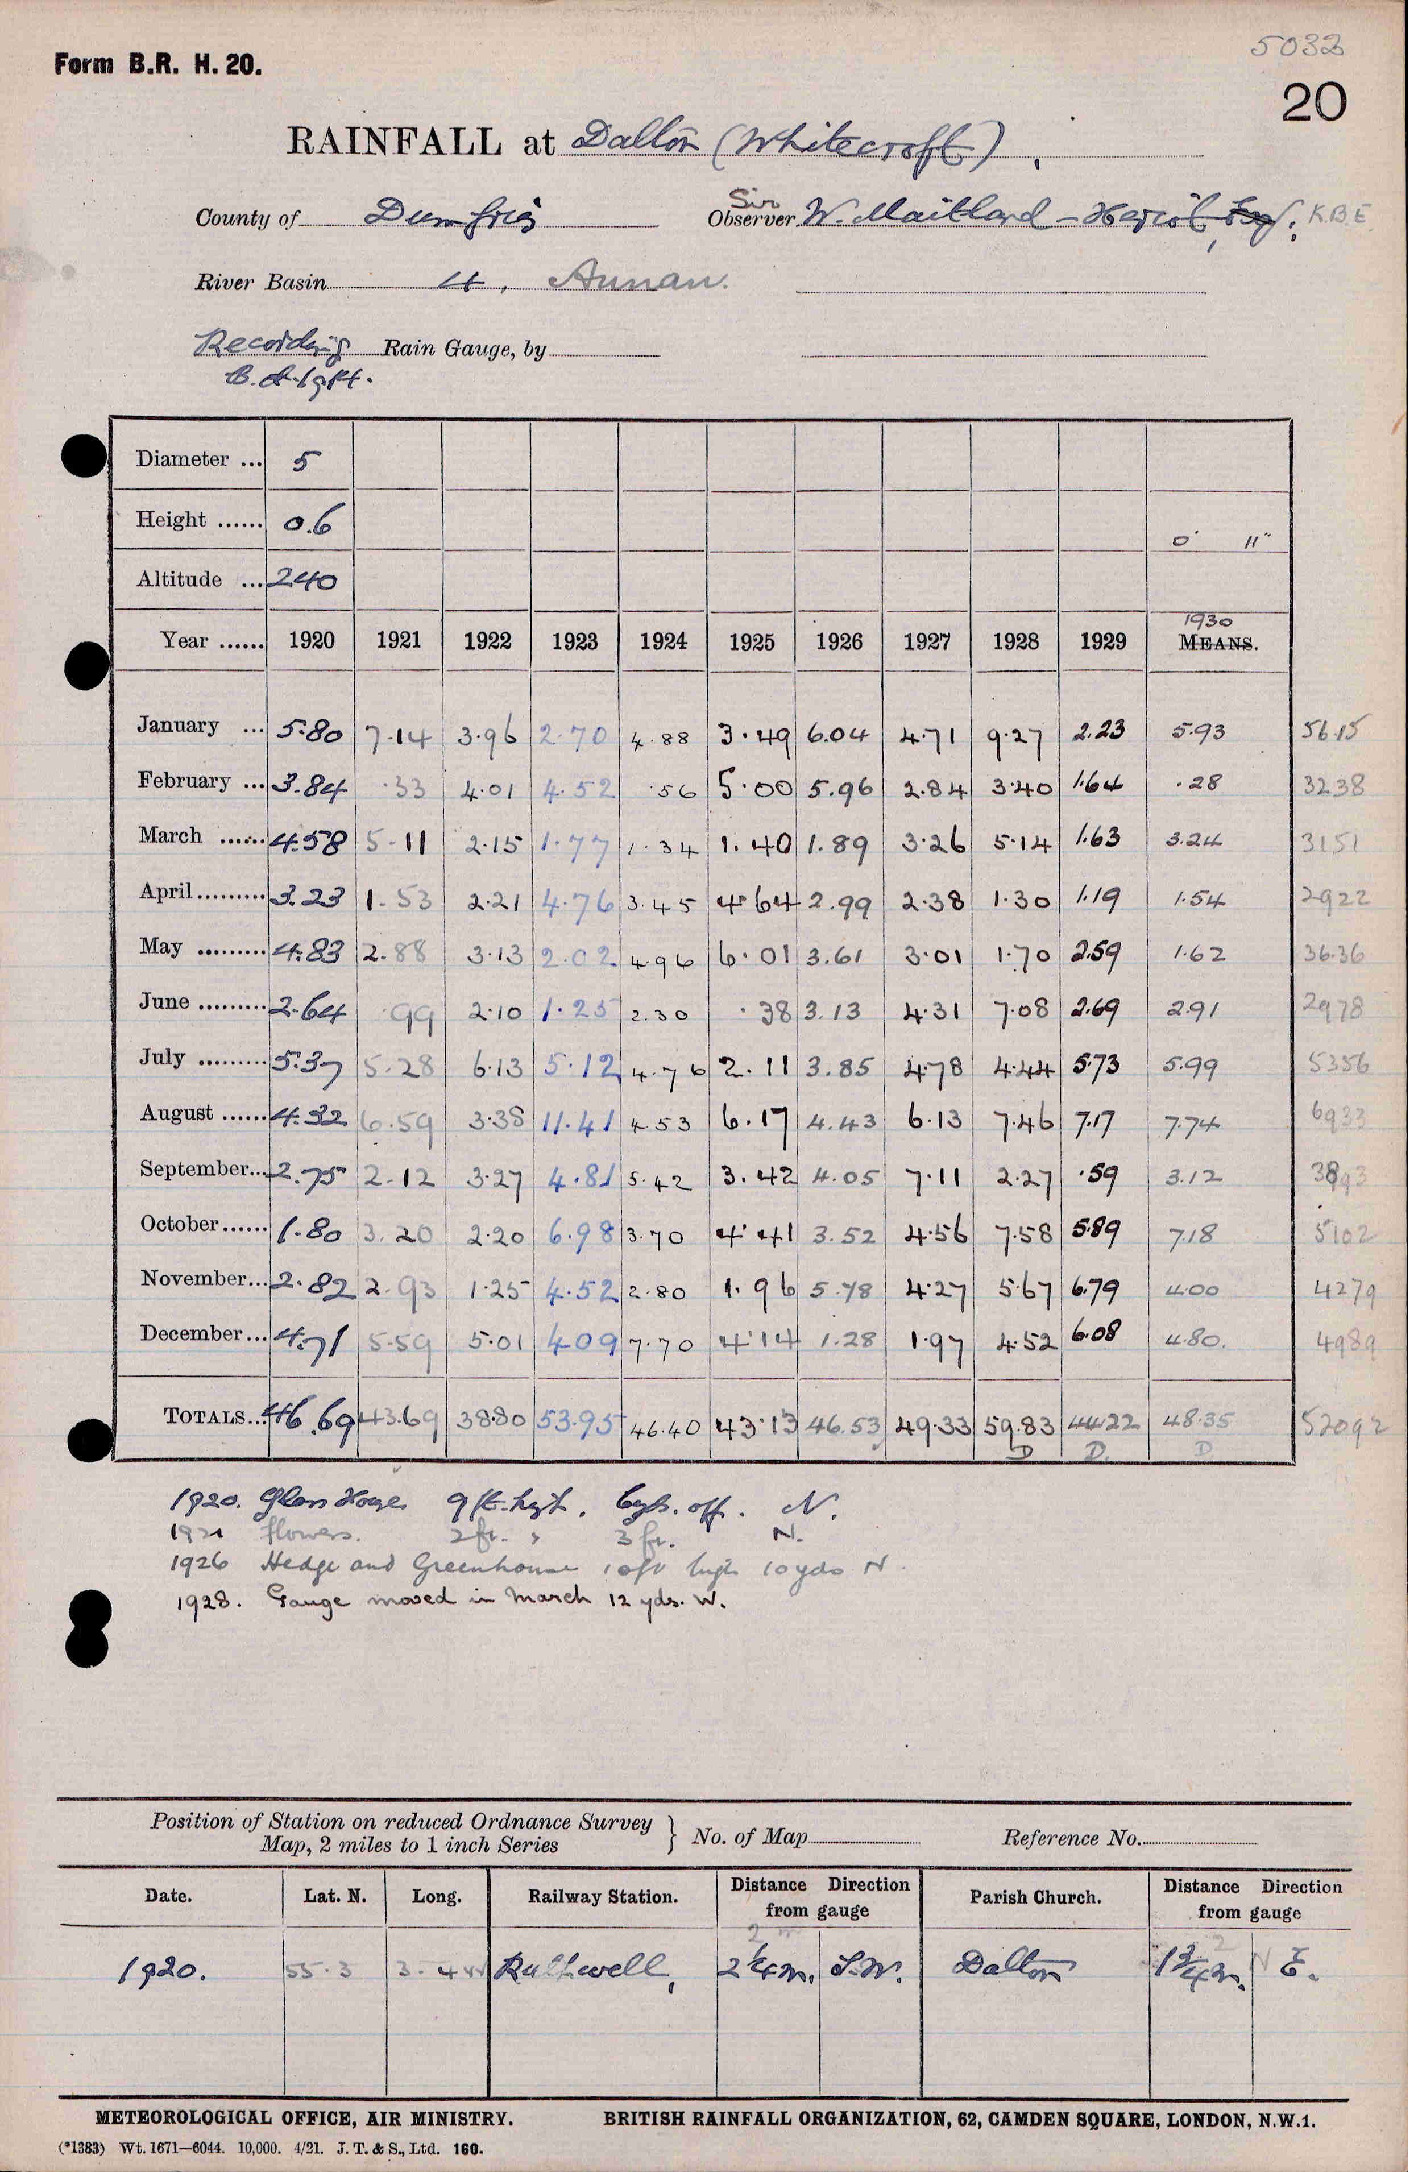 5032
Form B.R. H. 20.
20
RAINFALL at Dalton (Whitecroft)
Sir
County of Dumfries Observer W. Maitland - Heriot, Esq. K.B.E.
River Basin 4. Annan.
Recording Rain Gauge, by
Diameter ... 5
Height ...... 0.6 0' 11"
Altitude ... 240
1930
Year ...... 1920 1921 1922 1923 1924 1925 1926 1927 1928 1929 MEANS.
January ... 5.80 7.14 3.96 2.70 4.88 3.49 6.04 4.71 9.27 2.23 5.93 56.15
February ... 3.84 .33 4.01 4.52 .56 5.00 5.96 2.84 3.40 1.64 .28 3238
March ...... 4.58 5.11 2.15 1.77 1.34 1.40 1.89 3.26 5.14 1.63 3.24 3151
April ......... 3.23 1.53 2.21 4.76 3.45 4.64 2.99 2.38 1.30 1.19 1.54 2922
May ......... 4.83 2.88 3.13 2.02 4.96 6.01 3.61 3.01 1.70 2.59 1.62 36.36
June ......... 2.64 .99 2.10 1.25 2.30 .38 3.13 4.31 7.08 2.69 2.91 2978
July ......... 5.37 5.28 6.13 5.12 4.76 2.11 3.85 4.78 4.44 5.73 5.99 5356
August ...... 4.32 6.59 3.38 11.41 4.53 6.17 4.43 6.13 7.46 7.17 7.74 6933
September... 2.75 2.12 3.27 4.81 5.42 3.42 4.05 7.11 2.27 .59 3.12
October...... 1.80 3.20 2.20 6.98 3.70 4.41 3.52 4.56 7.58 5.89 7.18 5102
November... 2.82 2.93 1.25 4.52 2.80 1.96 5.78 4.27 5.67 6.79 4.00 4279
December... 4.71 5.59 5.01 4.09 7.70 4.14 1.28 1.97 4.52 6.08 4.80. 4989
TOTALS... 46.69 43.69 38.80 53.95 46.40 43.13 46.53 49.33 59.83 44.22 48.35 52092
D D. D
1920. Glass House 9 ft. hgh. 6 yds. off. N.
1921 flowers. 2 ft. " 3 ft. N.
1926 Hedge and Greenhouse 10 ft high 10 yds N.
1928. Gauge moved in March 12 yds. W.
Position of Station on reduced Ordnance Survey
Map, 2 miles to 1 inch Series } No. of Map Reference No.
Date. Lat. N. Long. Railway Station. Distance Direction from gauge Parish Church. Distance Direction from gauge
1920. 55.3 Ruthwell, 2 1/4 m. S.W. Dalton 1 3/4 m. E.
METEOROLOGICAL OFFICE, AIR MINISTRY. BRITISH RAINFALL ORGANIZATION, 62, CAMDEN SQUARE, LONDON, N.W.1.
(*1383) Wt. 1671—6044. 10,000. 4/21. J. T. & S., Ltd. 160.